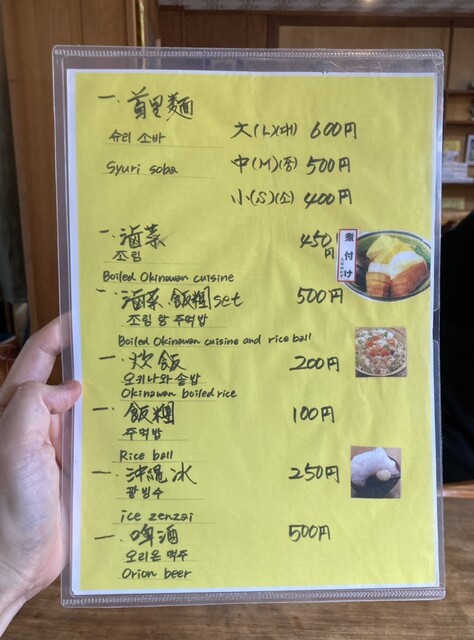 一. 首里麵 大(L)(대) 600円
슈리 소바
Syuri soba 中(M)(중) 500円
小(S)(소) 400円
一. 滷菜 450円
조림
Boiled Okinawan cuisine
煮付け
一. 滷菜.飯糰set 500円
조림 랑 주먹밥
Boiled Okinawan cuisine and rice ball
一. 炊飯 200円
오키나와 솥밥
Okinawan boiled rice
一. 飯糰 100円
주먹밥
Rice ball
一. 沖繩冰 250円
팥빙수
ice zenzai
一. 啤酒 500円
오리온 맥주
Orion beer